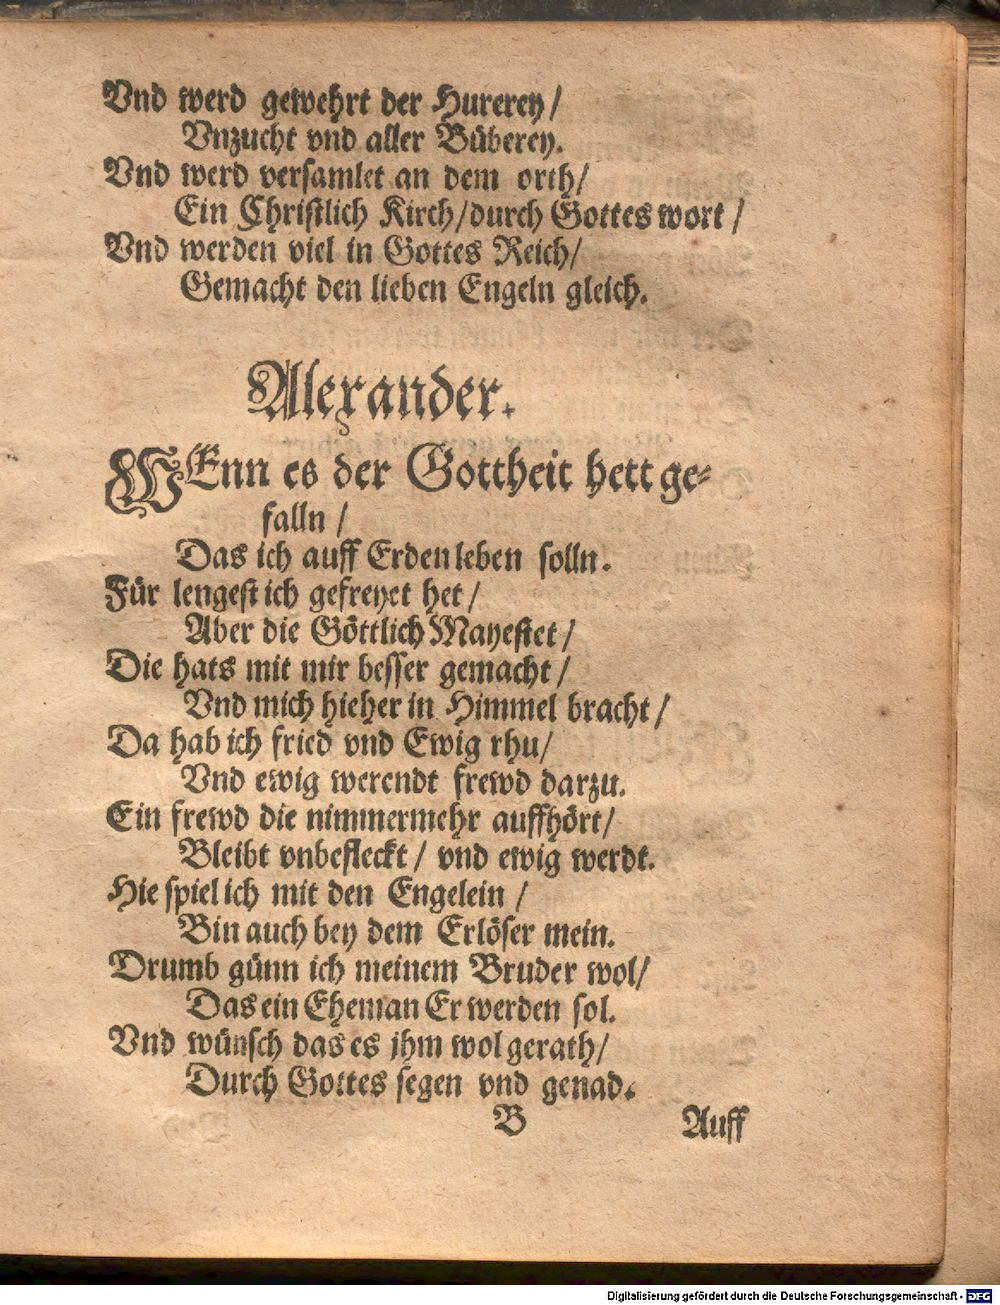 Vnd werd gewehrt der Hurerey /
Vnzucht vnd aller Büberey.
Vnd werd versamlet an dem orth /
Ein Christlich Kirch / durch Gottes wort /
Vnd werden viel in Gottes Reich /
Gemacht den lieben Engeln gleich.
Alexander.
WEnn es der Gottheit hett ge-
falln /
Das ich auff Erden leben solln.
Für lengest ich gefreyet het /
Aber die Göttlich Mayestet /
Die hats mit mir besser gemacht /
Vnd mich hieher in Himmel bracht /
Da hab ich fried vnd Ewig rhu /
Vnd ewig werendt frewd darzu.
Ein frewd die nimmermehr auffhört /
Bleibt vnbefleckt / vnd ewig werdt.
Hie spiel ich mit den Engelein /
Bin auch bey dem Erlöser mein.
Drumb günn ich meinem Bruder wol /
Das ein Eheman Er werden sol.
Vnd wünsch das es jhm wol gerath /
Durch Gottes segen vnd genad.
B Auff
Digitalisierung gefördert durch die Deutsche Forschungsgemeinschaft - DFG